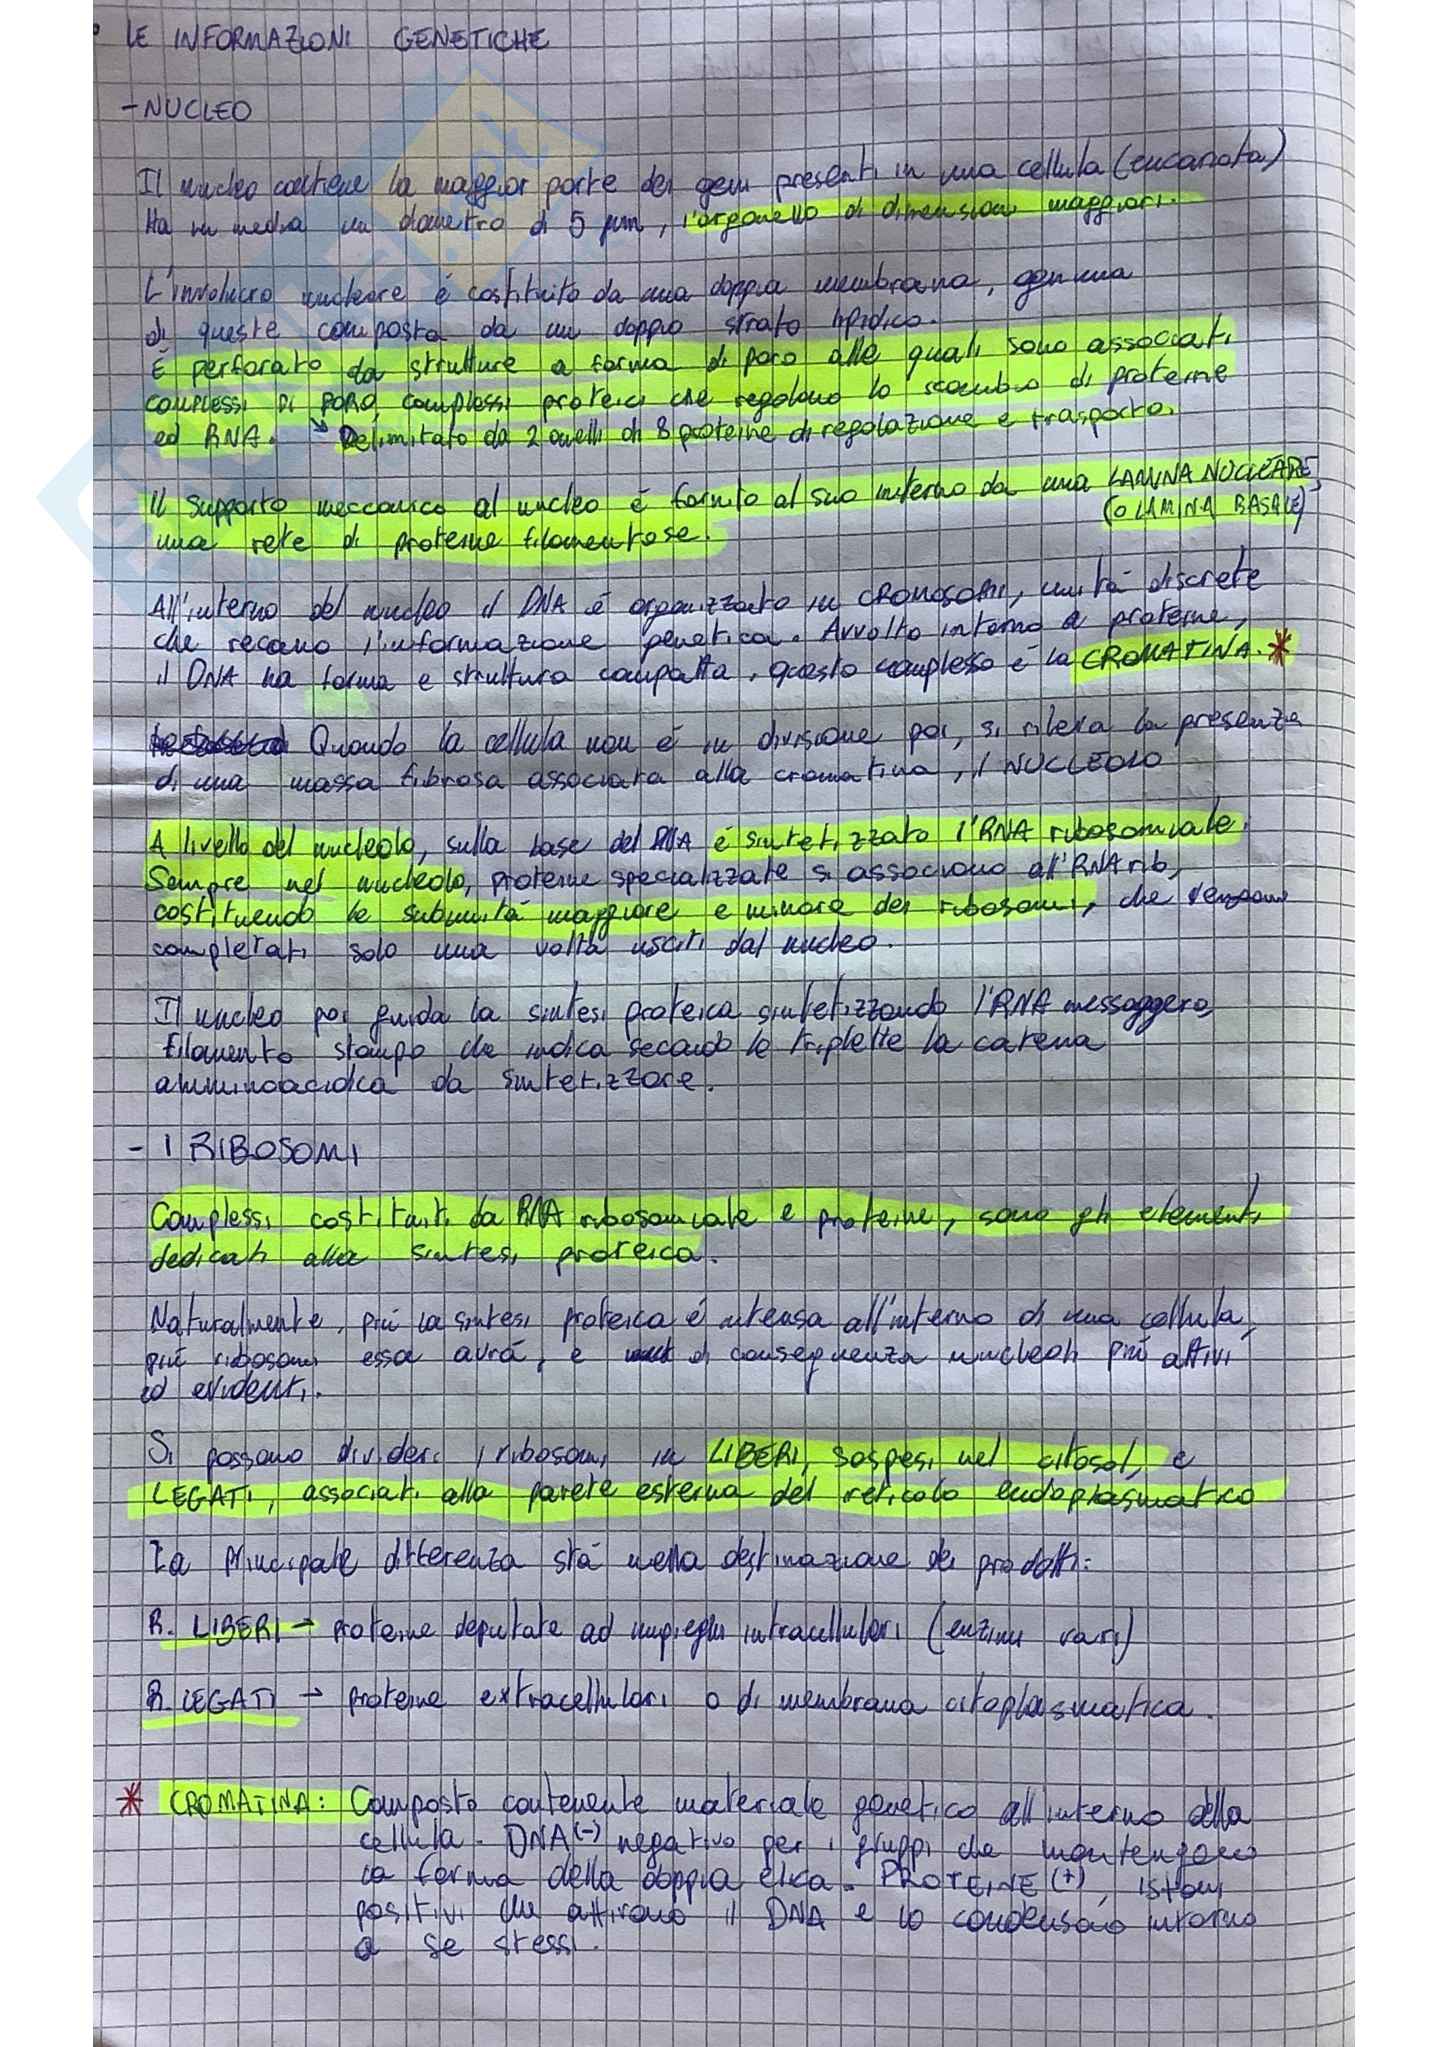 LE INFORMAZIONI GENETICHE
- NUCLEO
Il nucleo contiene la maggior parte dei geni presenti in una cellula (eucariota)
Ha in media un diametro di 5 µm, l'organello di dimensioni maggiori.
L'involucro nucleare é costituito da una doppia membrana, ognuna
di queste composta da un doppio strato lipidico.
É perforato da strutture a forma di poro alle quali sono associati
COMPLESSI DI PORO, complessi proteici che regolano lo scambio di proteine
ed RNA. ↘ Delimitato da 2 anelli di 8 proteine di regolazione e trasporto.
Il supporto meccanico al nucleo é fornito al suo interno da una LAMINA NUCLEARE,
(O LAMINA BASALE)
una rete di proteine filamentose.
All'interno del nucleo il DNA é organizzato in CROMOSOMI, unitá discrete
che recano l'informazione genetica. Avvolto intorno a proteine,
il DNA ha forma e struttura compatta, questo complesso é la CROMATINA. *
Quando la cellula non é in divisione poi, si rileva la presenza
di una massa fibrosa associata alla cromatina, il NUCLEOLO
A livello del nucleolo, sulla base del DNA é sintetizzato l'RNA ribosomiale.
Sempre nel nucleolo, proteine specializzate si associono all'RNA rib,
costituendo le subunitá maggiore e minore dei ribosomi, che vengono
completati solo una volta usciti dal nucleo.
Il nucleo poi guida la sintesi proteica sintetizzando l'RNA messaggero,
filamento stampo che indica secondo le triplette la catena
amminoacidica da sintetizzare.
- I RIBOSOMI
Complessi costituiti da RNA ribosomiale e proteine, sono gli elementi
dedicati alla sintesi proteica.
Naturalmente, piú la sintesi proteica é intensa all'interno di una cellula,
piú ribosomi essa avrá, e di conseguenza nucleoli piú attivi
ed evidenti.
Si possono dividere i ribosomi in LIBERI, sospesi nel citosol, e
LEGATI, associati alla parete esterna del reticolo endoplasmatico
La principale differenza stá nella destinazione dei prodotti:
R. LIBERI → proteine deputate ad impieghi intracellulari (enzimi vari)
R. LEGATI → proteine extracellulari o di membrana citoplasmatica.
* CROMATINA: Composto contenente materiale genetico all'interno della
cellula. DNA (-) negativo per i gruppi che mantengono
la forma della doppia elica. PROTEINE (+), istoni
positivi che attirano il DNA e lo condensano intorno
a se stessi.